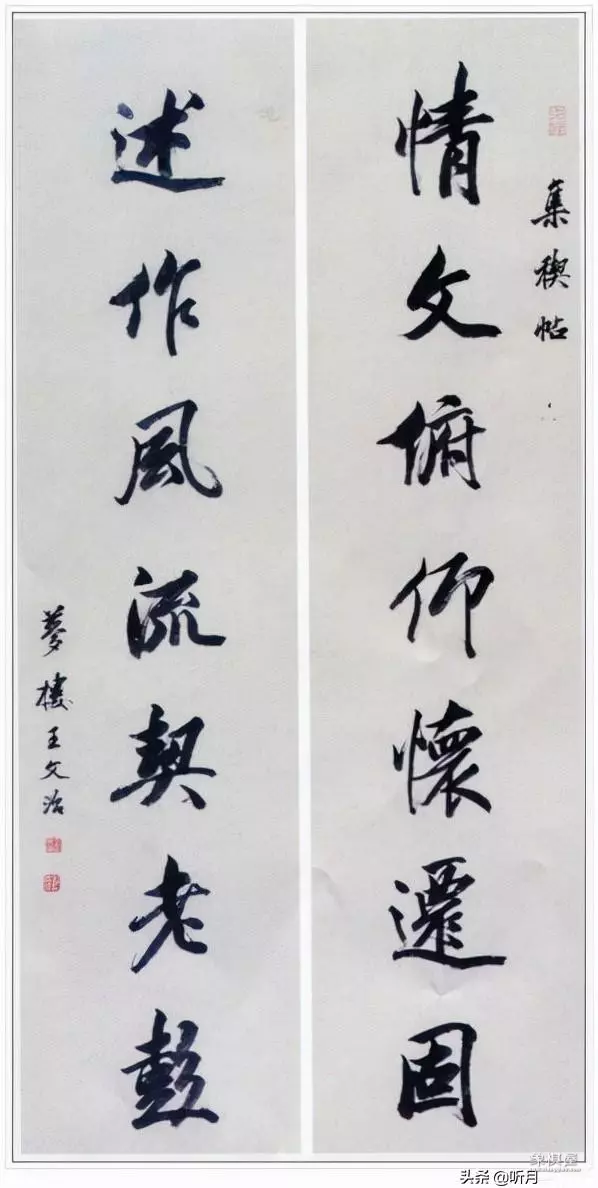 集稧帖
情文俯仰懷遷固
述作風流契老彭
夢樓王文治
头条@听月